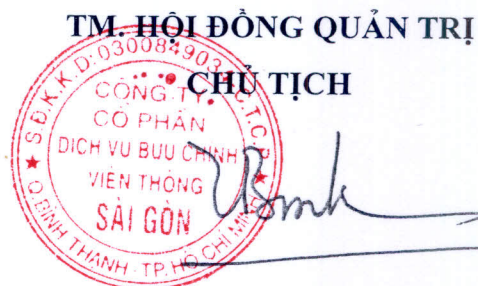 TM. HỘI ĐỒNG QUẢN TRỊ
CHỦ TỊCH
CÔNG TY
CỔ PHẦN
DỊCH VỤ BƯU CHÍNH
VIỄN THÔNG
SÀI GÒN
Q.BÌNH THẠNH - TP. HỒ CHÍ MINH